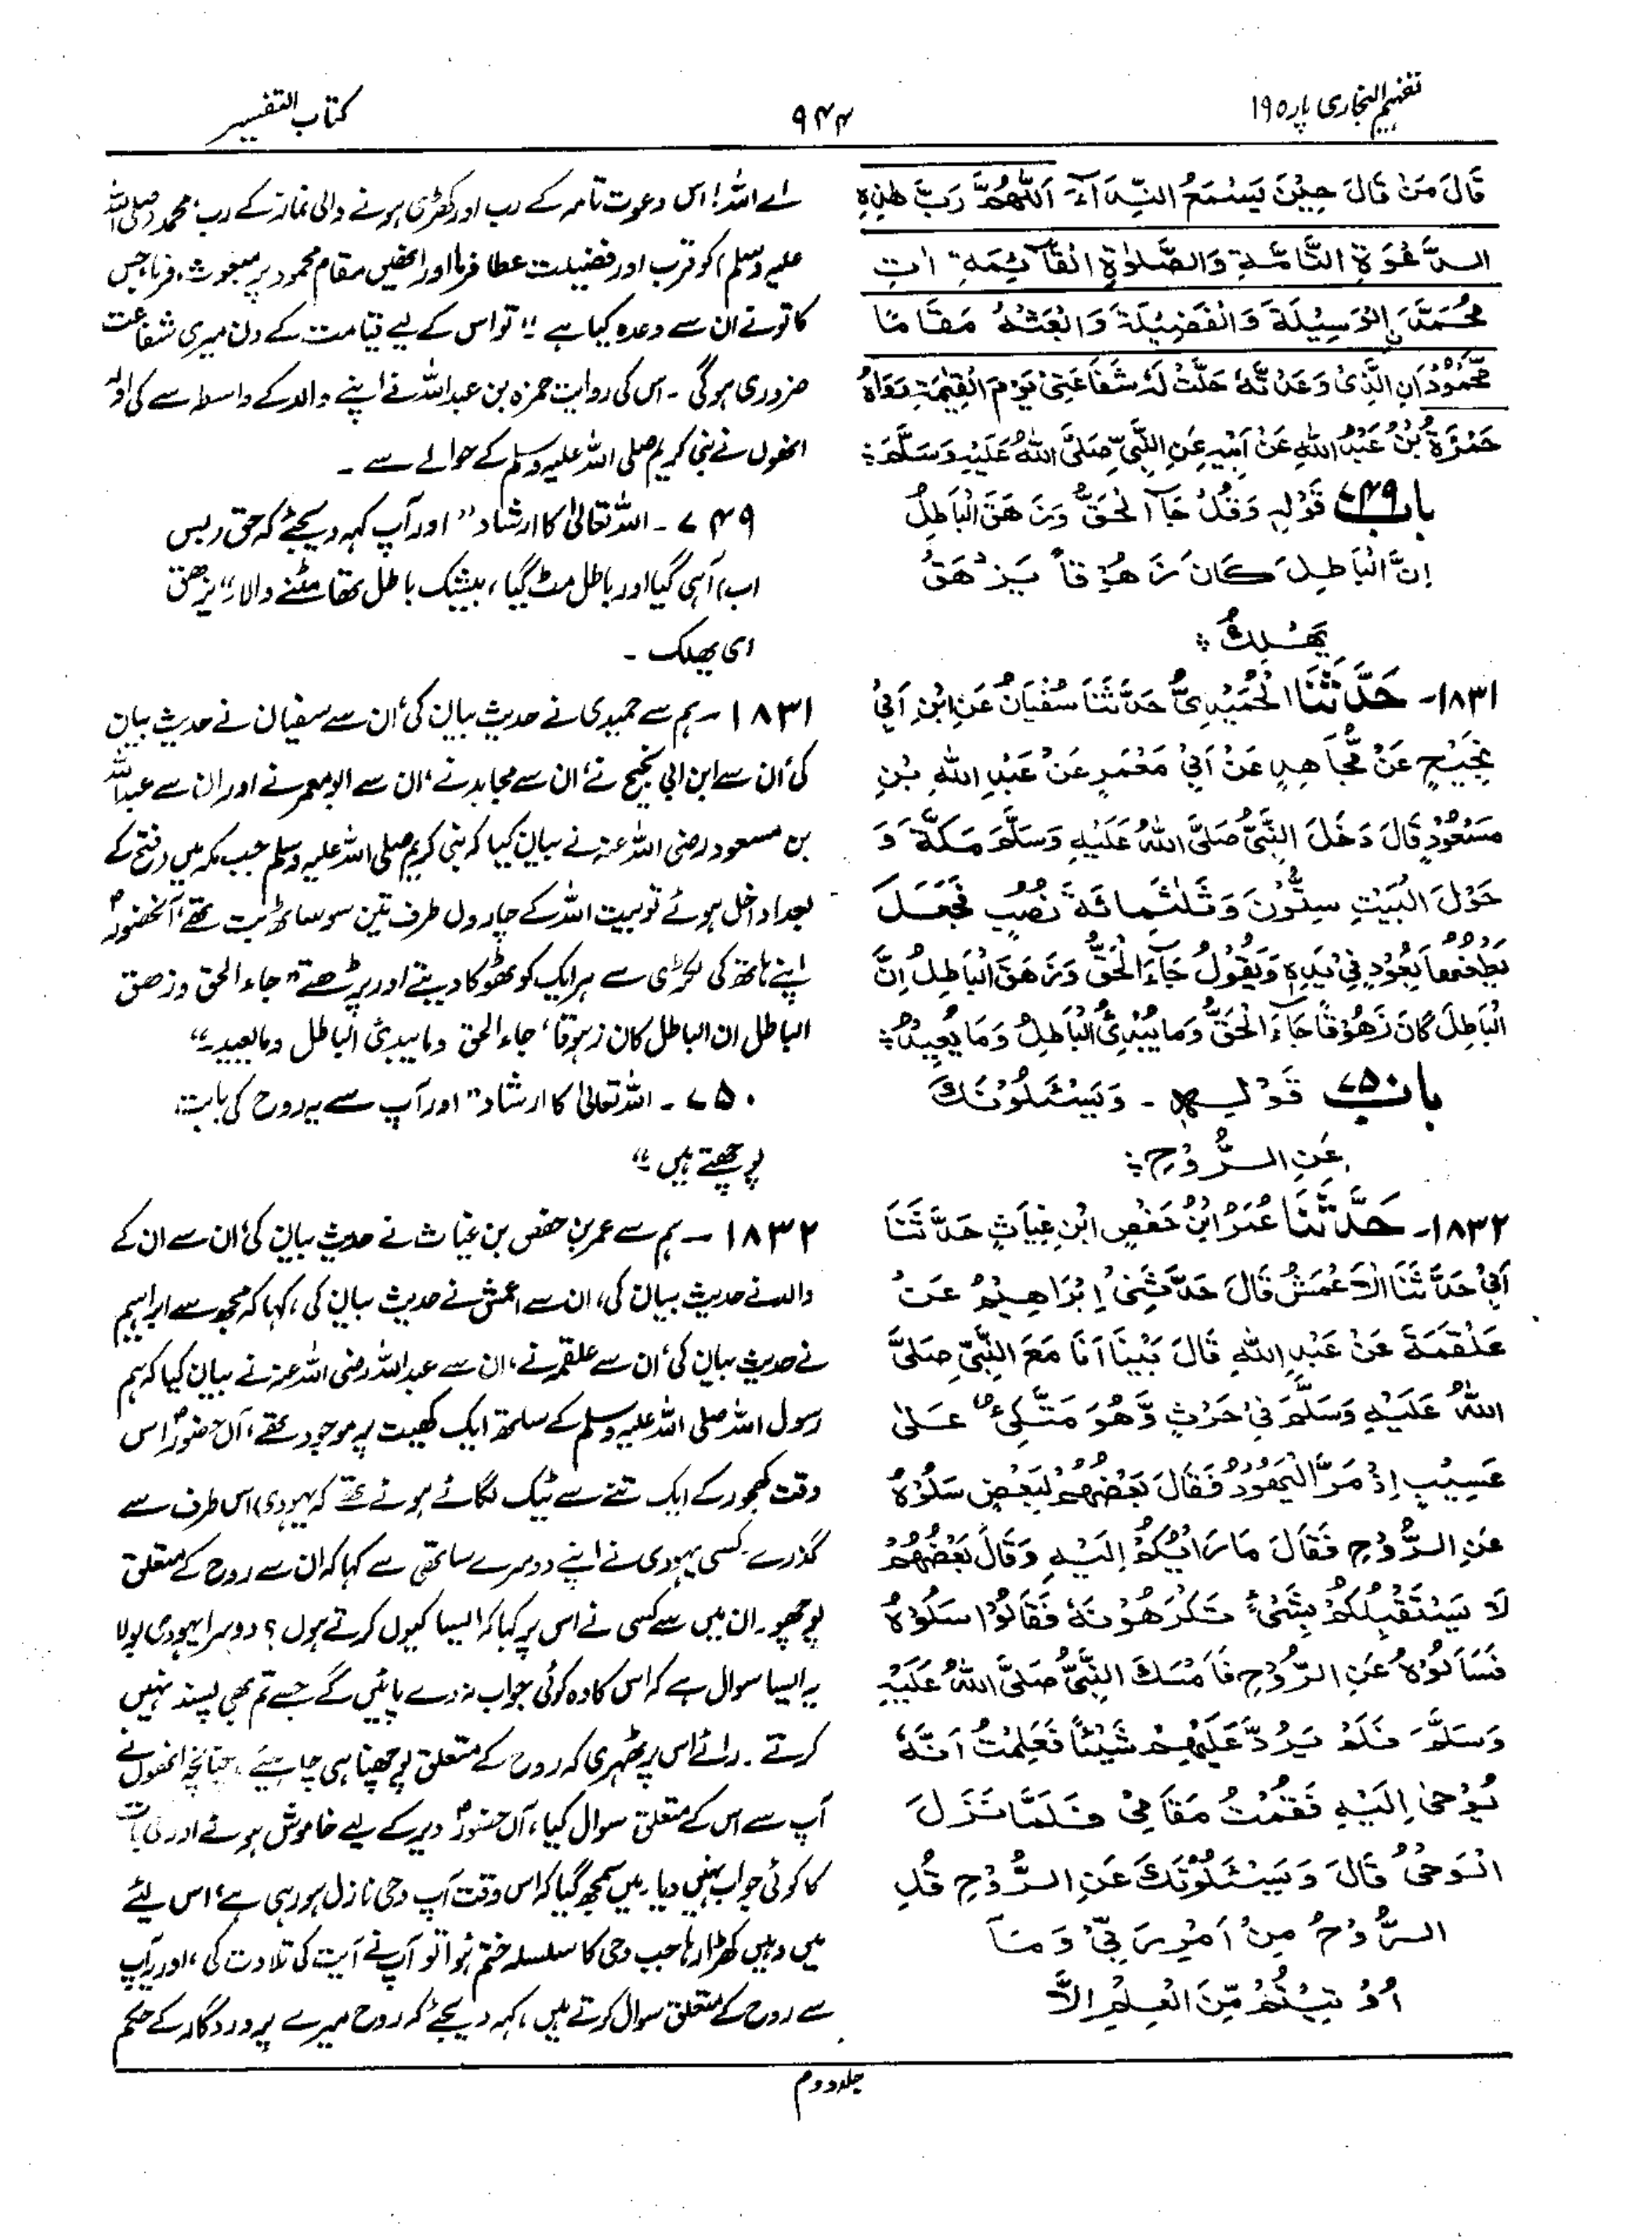 تفہیم البخاری پارہ ۱۹
۹۴۴
کتاب التفسیر
قَالَ مَنْ قَالَ حِیْنَ یَسْمَعُ النِّدَآءَ اَللّٰهُمَّ رَبَّ هٰذِهِ
الدَّعْوَةِ التَّامَّةِ وَالصَّلٰوةِ الْقَآئِمَةِ اٰتِ
مُحَمَّدَ نِ الْوَسِیْلَةَ وَالْفَضِیْلَةَ وَابْعَثْهُ مَقَامًا
مَّحْمُوْدَ انِ الَّذِیْ وَعَدْتَّهٗ حَلَّتْ لَهٗ شَفَاعَتِیْ یَوْمَ الْقِیٰمَةِ رَوَاهُ
حَمْزَةُ بْنُ عَبْدِ اللهِ عَنْ اَبِیْهِ عَنِ النَّبِیِّ صَلَّی اللهُ عَلَیْهِ وَسَلَّمَ ؛
باب ۷۴۹ قَوْلِهٖ وَقُلْ جَآءَ الْحَقُّ وَزَهَقَ الْبَاطِلُ
اِنَّ الْبَاطِلَ کَانَ زَهُوْقًا یَزْهَقُ
یَهْلِكُ ؛
۱۸۳۱۔ حَدَّثَنَا الْحُمَیْدِیُّ حَدَّثَنَا سُفْیَانُ عَنِ ابْنِ اَبِیْ
نَجِیْحٍ عَنْ مُّجَاهِدٍ عَنْ اَبِیْ مَعْمَرٍ عَنْ عَبْدِ اللهِ بْنِ
مَسْعُوْدٍ قَالَ دَخَلَ النَّبِیُّ صَلَّی اللهُ عَلَیْهِ وَسَلَّمَ مَکَّةَ وَ
حَوْلَ الْبَیْتِ سِتُّوْنَ وَثَلٰثُمِائَةِ نُصُبٍ فَجَعَلَ
یَطْعَنُهَا بِعُوْدٍ فِیْ یَدِهٖ وَیَقُوْلُ جَآءَ الْحَقُّ وَزَهَقَ الْبَاطِلُ اِنَّ
الْبَاطِلَ کَانَ زَهُوْقًا جَآءَ الْحَقُّ وَمَا یُبْدِئُ الْبَاطِلُ وَمَا یُعِیْدُ ؛
باب ۷۵۰ قَوْلِهٖ ۔ وَیَسْئَلُوْنَكَ
عَنِ الرُّوْحِ ؛
۱۸۳۲۔ حَدَّثَنَا عُمَرُ ابْنُ حَفْصٍ ابْنِ غِیَاثٍ حَدَّثَنَا
اَبِیْ حَدَّثَنَا الْاَعْمَشُ قَالَ حَدَّثَنِیْ اِبْرَاهِیْمُ عَنْ
عَلْقَمَةَ عَنْ عَبْدِ اللهِ قَالَ بَیْنَا اَنَا مَعَ النَّبِیِّ صَلَّی
اللهُ عَلَیْهِ وَسَلَّمَ فِیْ حَرْثٍ وَّهُوَ مَتَّکِیءٌ عَلٰی
عَسِیْبٍ اِذْ مَرَّ الْیَهُوْدُ فَقَالَ بَعْضُهُمْ لِبَعْضٍ سَلُوْهُ
عَنِ الرُّوْحِ فَقَالَ مَا رَابَکُمْ اِلَیْهِ وَقَالَ بَعْضُهُمْ
لَا یَسْتَقْبِلُکُمْ بِشَیْءٍ تَکْرَهُوْنَهٗ فَقَالُوْا سَلُوْهُ
فَسَاَلُوْهُ عَنِ الرُّوْحِ فَاَمْسَكَ النَّبِیُّ صَلَّی اللهُ عَلَیْهِ
وَسَلَّمَ فَلَمْ یَرُدَّ عَلَیْهِمْ شَیْئًا فَعَلِمْتُ اَنَّهٗ
یُوْحٰی اِلَیْهِ فَقُمْتُ مَقَامِیْ فَلَمَّا نَزَلَ
الْوَحْیُ قَالَ وَیَسْئَلُوْنَكَ عَنِ الرُّوْحِ قُلِ
الرُّوْحُ مِنْ اَمْرِ رَبِّیْ وَمَآ
اُوْتِیْتُمْ مِّنَ الْعِلْمِ اِلَّا
اے اللہ! اس دعوت تامہ کے رب اور کھڑی ہونے والی نماز کے رب، محمد (صلی اللہ
علیہ وسلم) کو قرب اور فضیلت عطا فرما اور انھیں مقام محمود پر مبعوث فرما، جس
کا تونے ان سے وعدہ کیا ہے "، تو اس کے لیے قیامت کے دن میری شفاعت
ضروری ہوگی ۔ اس کی روایت حمزہ بن عبداللہ نے اپنے والد کے واسطہ سے کی اور
انھوں نے نبی کریم صلی اللہ علیہ وسلم کے حوالے سے ۔
۷۴۹ ۔ اللہ تعالیٰ کا ارشاد " اور آپ کہہ دیجئے کہ حق (بس
اب) آہی گیا اور باطل مٹ گیا، بیشک باطل تھا مٹنے والا " یزھق
ای یھلک ۔
۱۸۳۱ ۔ ہم سے حمیدی نے حدیث بیان کی، ان سے سفیان نے حدیث بیان
کی، ان سے ابن ابی نجیح نے، ان سے مجاہد نے، ان سے ابومعمر نے اور ان سے عبداللہ
بن مسعود رضی اللہ عنہ نے بیان کیا کہ نبی کریم صلی اللہ علیہ وسلم جب مکہ میں (فتح کے
بعد) داخل ہوئے تو بیت اللہ کے چاروں طرف تین سو ساٹھ بت تھے، آنحضورؐ
اپنے ہاتھ کی لکڑی سے ہر ایک کو ٹھوکا دیتے اور پڑھتے " جاء الحق وزھق
الباطل ان الباطل کان زہوقا، جاء الحق وما یبدئ الباطل وما یعید ۔"
۷۵۰ ۔ اللہ تعالیٰ کا ارشاد " اور آپ سے یہ روح کی بابت
پوچھتے ہیں "
۱۸۳۲ ۔ ہم سے عمر بن حفص بن غیاث نے حدیث بیان کی، ان سے ان کے
والد نے حدیث بیان کی، ان سے اعمش نے حدیث بیان کی، کہا کہ مجھ سے ابراہیم
نے حدیث بیان کی، ان سے علقمہ نے، ان سے عبداللہ رضی اللہ عنہ نے بیان کیا کہ ہم
رسول اللہ صلی اللہ علیہ وسلم کے ساتھ ایک کھیت پر موجود تھے، آں حضورؐ اس
وقت کھجور کے ایک تنے سے ٹیک لگائے ہوئے تھے کہ یہودی اس طرف سے
گذرے۔ کسی یہودی نے اپنے دوسرے ساتھی سے کہا کہ ان سے روح کے متعلق
پوچھو۔ ان میں سے کسی نے اس پر کہا کہ ایسا کیوں کرتے ہوں؟ دوسرا یہودی بولا
یہ ایسا سوال ہے کہ اس کا وہ کوئی جواب نہ دے پائیں گے جسے تم بھی پسند نہیں
کرتے ۔ رائے اس پر ٹھہری کہ روح کے متعلق پوچھنا ہی چاہیئے، چنانچہ انھوں نے
آپ سے اس کے متعلق سوال کیا، آں حضورؐ دیر کے لیے خاموش ہوئے اور کی بات
کا کوئی جواب نہیں دیا، میں سمجھ گیا کہ اس وقت آپ وحی نازل ہورہی ہے، اس لیئے
میں وہیں کھڑا رہا جب وحی کا سلسلہ ختم ہوا تو آپ نے آیت کی تلاوت کی، اور یہ آپ
سے روح کے متعلق سوال کرتے ہیں، کہہ دیجئے کہ روح میرے پروردگار کے حکم
جلد دوم